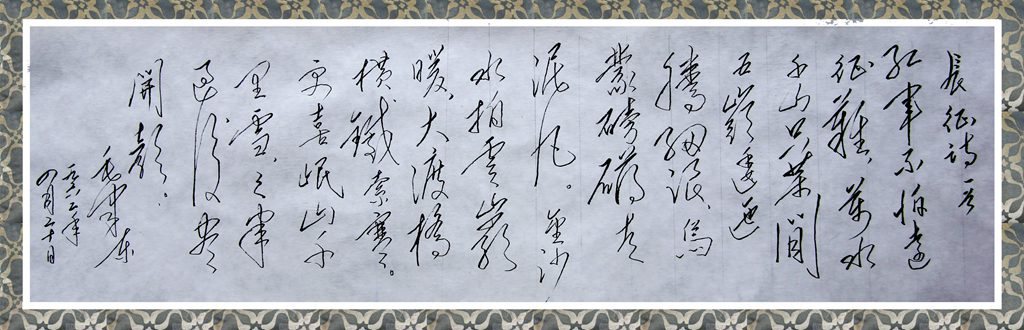 長征詩一首
紅軍不怕遠
征難,萬水
千山只等閒
五嶺逶迤
騰細浪,烏
蒙磅礴走
泥丸。金沙
水拍雲崖
暖,大渡橋
橫鐵索寒。
更喜岷山千
里雪,三軍
過後盡
開顏:
毛澤東
一九六二年
四月二十日